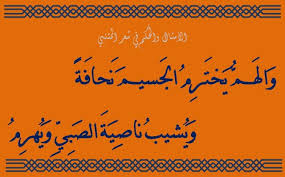 الامثال والحكم في شعر المتنبي
وَالهَـمُّ يَخْتَرِمُ الجَسيمَ نَحافَةً
وَيُشيبُ ناصِيَةَ الصَبِيِّ وَيُهرِمُ